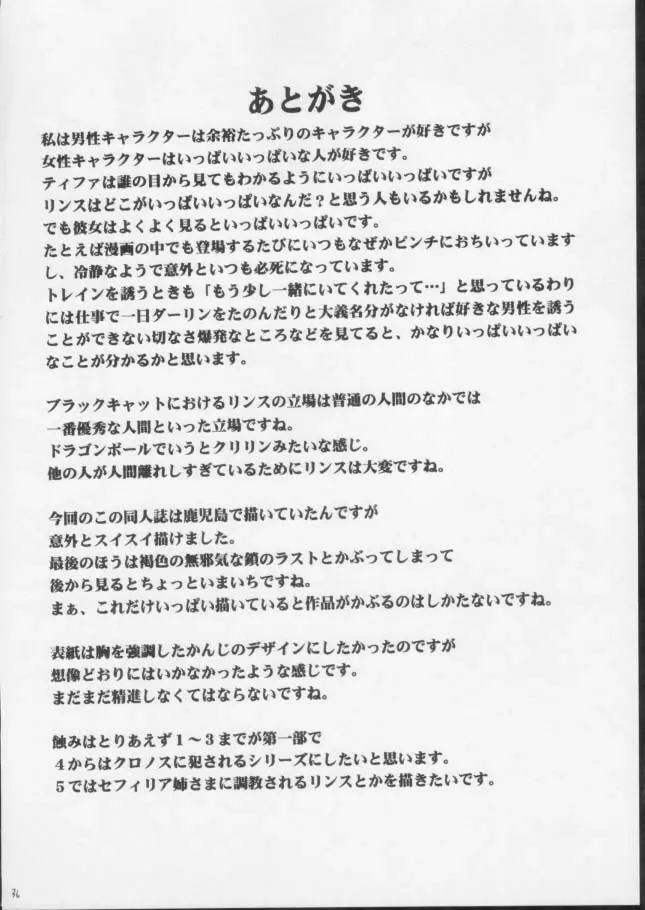 あとがき
私は男性キャラクターは余裕たっぷりのキャラクターが好きですが
女性キャラクターはいっぱいいっぱいな人が好きです。
ティファは誰の目から見てもわかるようにいっぱいいっぱいですが
リンスはどこがいっぱいいっぱいなんだ?と思う人もいるかもしれませんね。
でも彼女はよくよく見るといっぱいいっぱいです。
たとえば漫画の中でも登場するたびにいつもなぜかピンチにおちいっています
し、冷静なようで意外といつも必死になっています。
トレインを誘うときも「もう少し一緒にいてくれたって…」と思っているわり
には仕事で一日ダーリンをたのんだりと大義名分がなければ好きな男性を誘う
ことができない切なさ爆発なところなどを見てると、かなりいっぱいいっぱい
なことが分かるかと思います。
ブラックキャットにおけるリンスの立場は普通の人間のなかでは
一番優秀な人間といった立場ですね。
ドラゴンボールでいうとクリリンみたいな感じ。
他の人が人間離れしすぎているためにリンスは大変ですね。
今回のこの同人誌は鹿児島で描いていたんですが
意外とスイスイ描けました。
最後のほうは褐色の無邪気な鎖のラストとかぶってしまって
後から見るとちょっといまいちですね。
まぁ、これだけいっぱい描いていると作品がかぶるのはしかたないですね。
表紙は胸を強調したかんじのデザインにしたかったのですが
想像どおりにはいかなかったような感じです。
まだまだ精進しなくてはならないですね。
蝕みはとりあえず1~3までが第一部で
4からはクロノスに犯されるシリーズにしたいと思います。
5ではセフィリア姉さまに調教されるリンスとかを描きたいです。
36